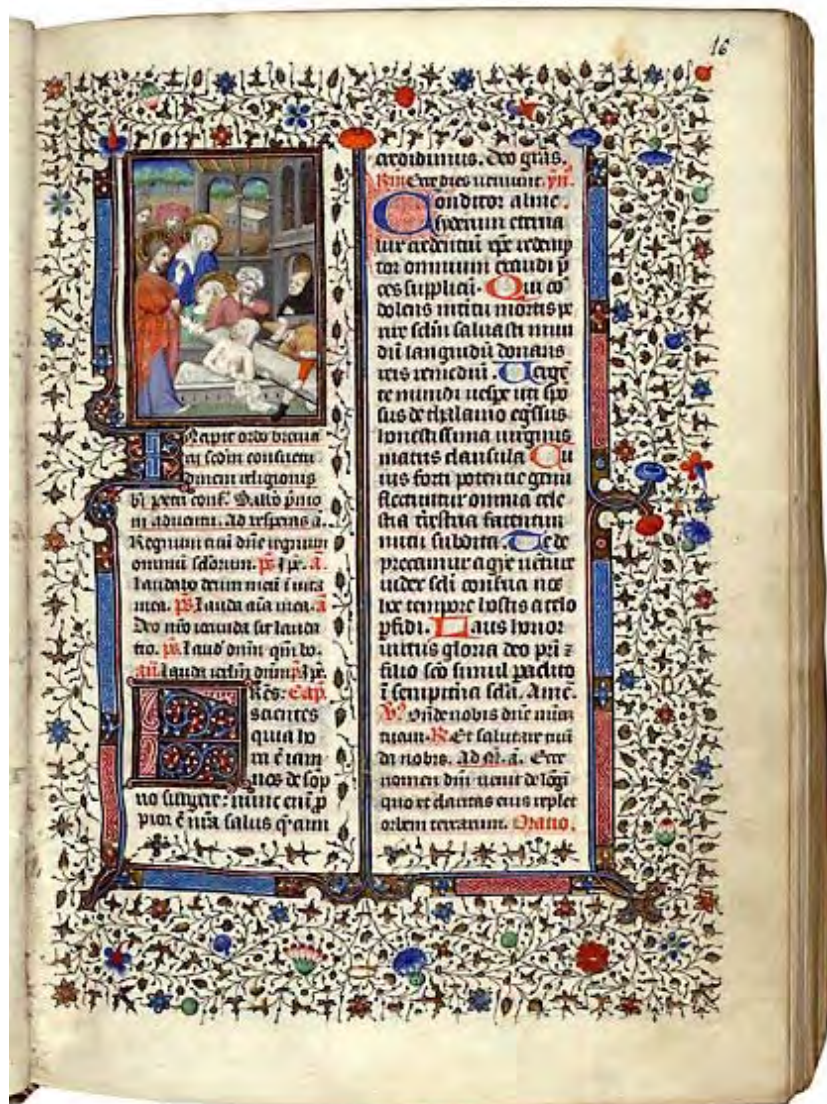 16
Incipit ordo brevia
rii scdm consuetu
dinem religionis
Regnum tuū dne regnum
omniū sclorum. ps a.
Laudabo deum meū ī vita
mea. ps Lauda aīa mea. a
Deo nrō iocunda sit lauda
tio. ps Laud' dnm qm bo.
an Lauda ierlm dnm ps
Fres. Cap.
scientes
quia ho
ra ē iam
nos de sop
no surgere: nunc enī p
pior ē nrā salus q cum
credidimus. Deo grās.
Rm Ecce dies veniunt. yn.
Conditor alme
syderum eterna
lux credentiū xp̄e redemp
tor omnium exaudi p̄
ces supplicū. Qui cō
dolens interitu mortis pe
rire sclm salvasti mun
dū languidū donans
reis remediū. Vergē
te mundi vespe uti spō
sus de thalamo egssus
honestissima virginis
matris clausula. Cu
ius forti potentie genu
flectuntur omnia cele
stia trestria fatentur
nutu subdita. Te de
precamur agye venture
iudex scli conserva nos
hoc tempore hostis a telo
pfidi. Laus honor
virtus gloria deo pri ⁊
filio scō simul paclito
ī sempiterna scla. Amē.
V. Onde nobis dne miām
tuam. R. Et salutare tuū
da nobis. Ad M. a. Ecce
nomen dnī venit de lōgī
quo et claritas eius replet
orbem terrarum. Oratio.